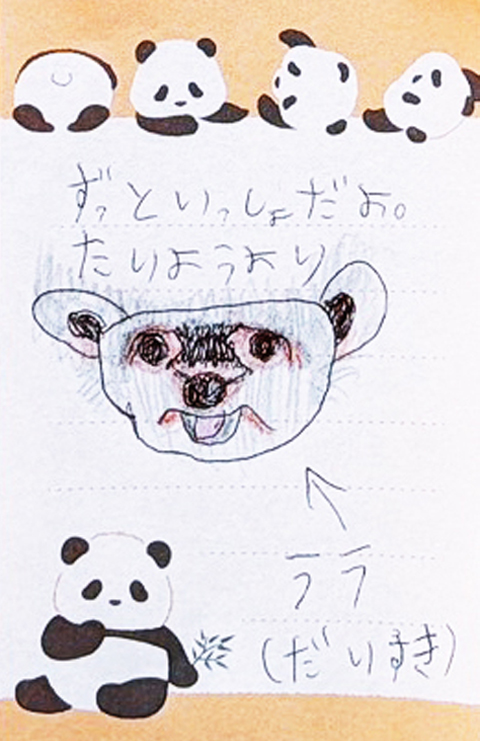 ずっといっしょだよ。
たいようより
ララ
(だいすき)